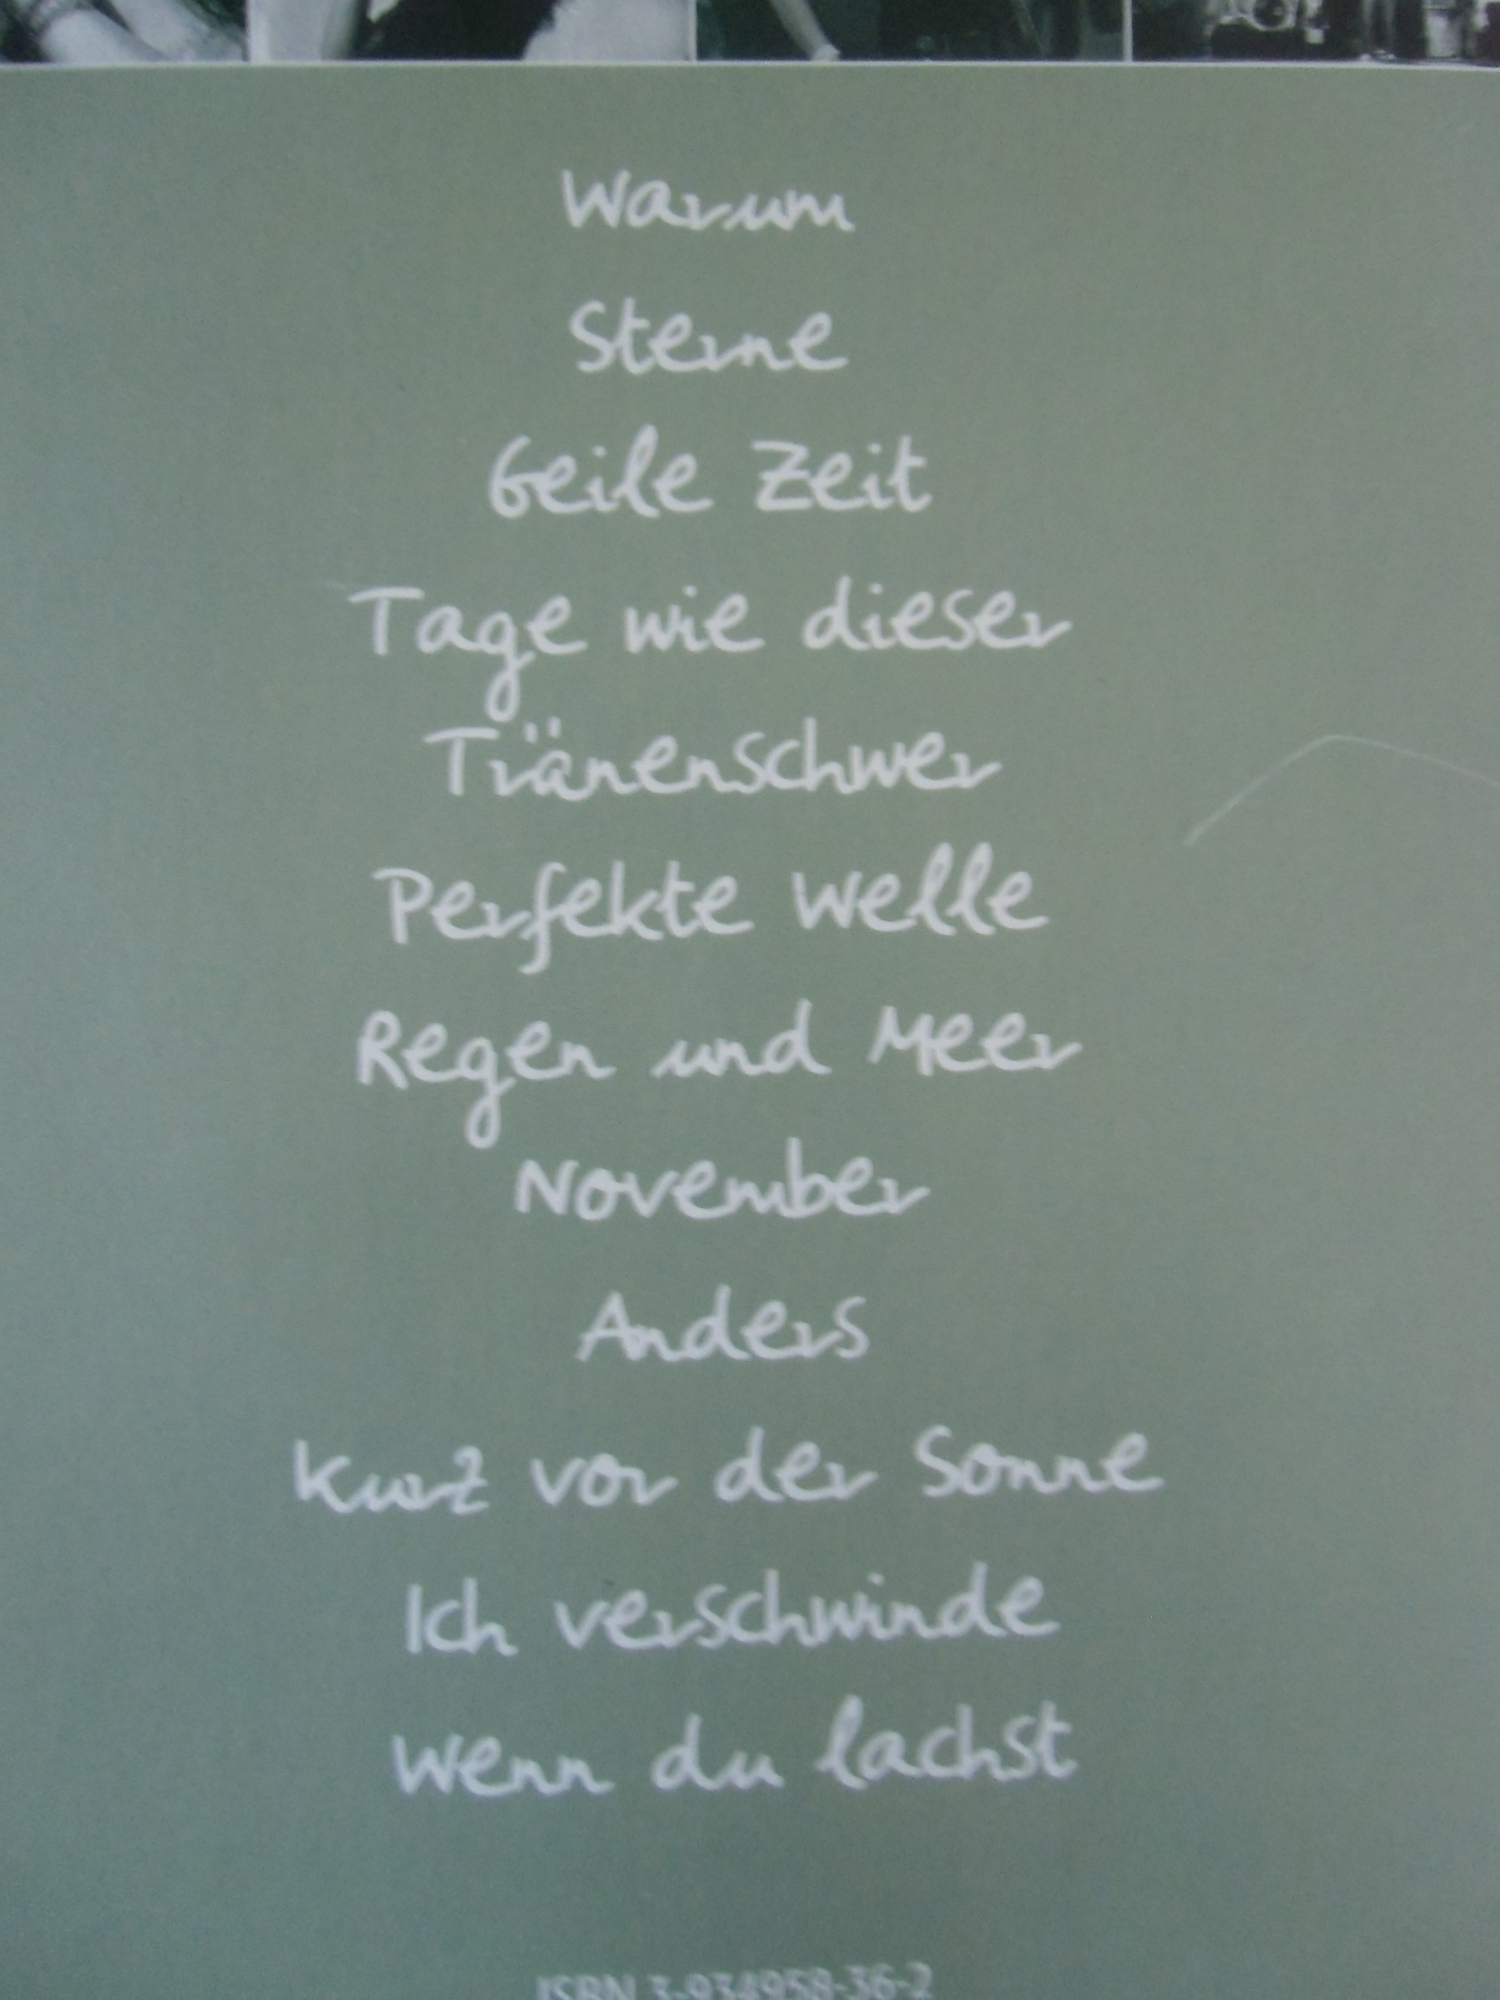 Warum
Sterne
Geile Zeit
Tage wie dieser
Tränenschwer
Perfekte Welle
Regen und Meer
November
Anders
Kurz vor der Sonne
Ich verschwinde
Wenn du lachst
ISBN 3-934958-36-2